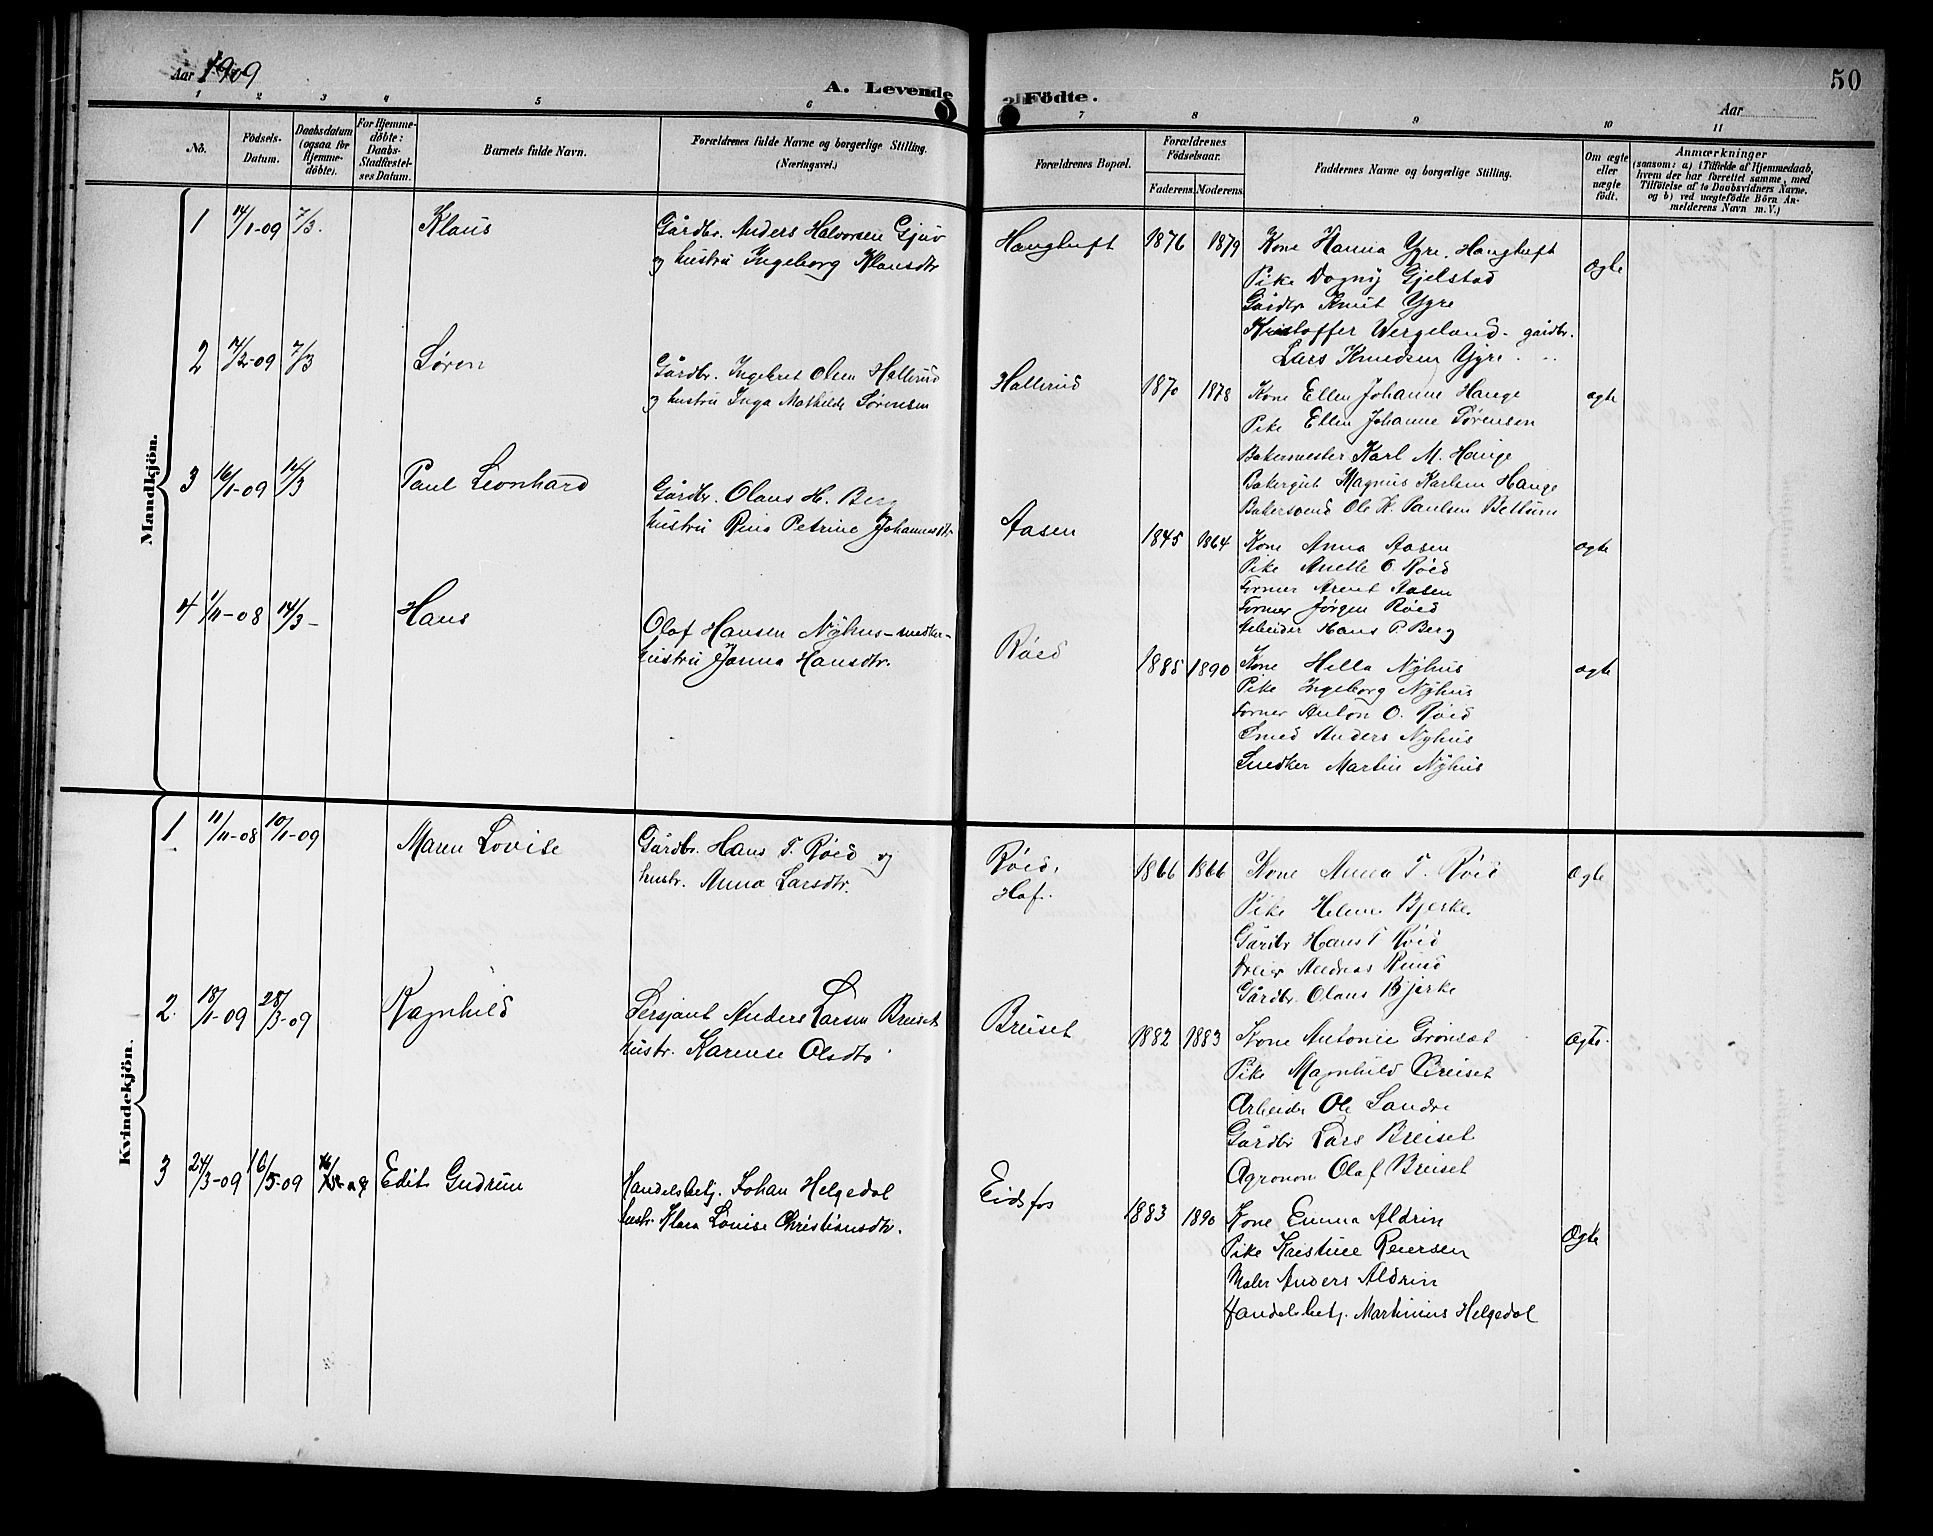 Aar 1909
A. Levende Födte.
50
Aar
1 2 3 4 5 6 7 8 9 10 11
No.
Födsels-Datum.
Daabsdatum (ogsaa for Hjemme-döbte).
For Hjemme-döbte: Daabs-Stadfæstel-ses Datum.
Barnets fulde Navn.
Forældrenes fulde Navne og borgerlige Stilling.
(Næringsvei.)
Forældrenes Bopæl.
Forældrenes Födselsaar.
Faderens. Moderens.
Faddernes Navne og borgerlige Stilling.
Om ægte eller uægte födt.
Anmærkninger
(saasom: a) i Tilfælde af Hjemmedaab,
hvem der har forrettet samme, med
Tilföielse af to Daabsvidners Navne,
og b) ved uægtefödte Börn An-
melderens Navn m. V.)
Mandkjön.
1 14/1-09 7/3. Klaus
Gårdbr. Anders Halvorsen Gjuv
og hustru Ingeborg Klausdtr
Haugtuft 1876 1879
Kone Hanna Ygre, Haugtuft
Pike Dagny Gjelstad
Gårdbr Knut Ygre
Kristoffer Wergeland - gårdbr.
Lars Knudsen Ygre
ægte
2 14/2-09 7/3 Søren
Gårdbr. Ingebret Olsen Hallerud
og hustru Inga Mathilde Sørensen
Hallerud 1870 1878
Kone Ellen Johanne Hauge
Pike Ellen Johanne Sørensen
Bakermester Karl M. Hauge
Bakergut Magnus Karlem Hauge
Bakersvend Ole K. Paulsen Bettum
ægte
3 16/1-09 14/3 Paul Leonhard
Gårdbr. Olaus H. Berg
hustru Petrine Johannesdtr
Aasen 1845 1864
Kone Anna Aasen
Pike Anette O. Røed
Former Arent Aasen
Former Jørgen Røed
Arbeider Hans P. Berg
ægte
4 1/11-08 14/3- Hans
Olaf Hansen Nyhus - snedker -
hustru Janna Hansdtr.
Røed 1885 1890
Kone Hella Nyhus
Pike Ingeborg Nyhus
Former Anton O. Røed
Smed Anders Nyhus
Snedker Martin Nyhus
ægte
Kvindekjön.
1 11/11-08 10/1-09 Maren Lovise
Gårdbr. Hans T. Røed og
hustr. Anna Larsdtr.
Røed, Hof. 1866 1866
Kone Anna T. Røed
Pike Helene Bjerke
Gårdbr Hans T Røed
Dreier Andreas Ruud
Gårdbr. Olaus Bjerke
Ægte
2. 18/1-09 28/3-09 Ragnhild
Sersjant Anders Larsen Breiset
hustr. Karense Olsdtr
Breiset 1882 1883
Kone Antonie Grønsæt
Pike Magnhild Breiset
Arbeider Ole Sandre
Gårdbr Lars Breiset
Agronom Olaf Breiset
Ægte.
3 24/3-09 16/5-09 16/5-09 Edit Gudrun
Handelsbetj. Johan Helgedal
hustr. Klara Louise Christiansdtr.
Eidsfos 1883 1890
Kone Emma Aldrin
Pike Kristine Reiersen
Maler Anders Aldrin
Handelsbetj. Martinius Helgedal
Ægte